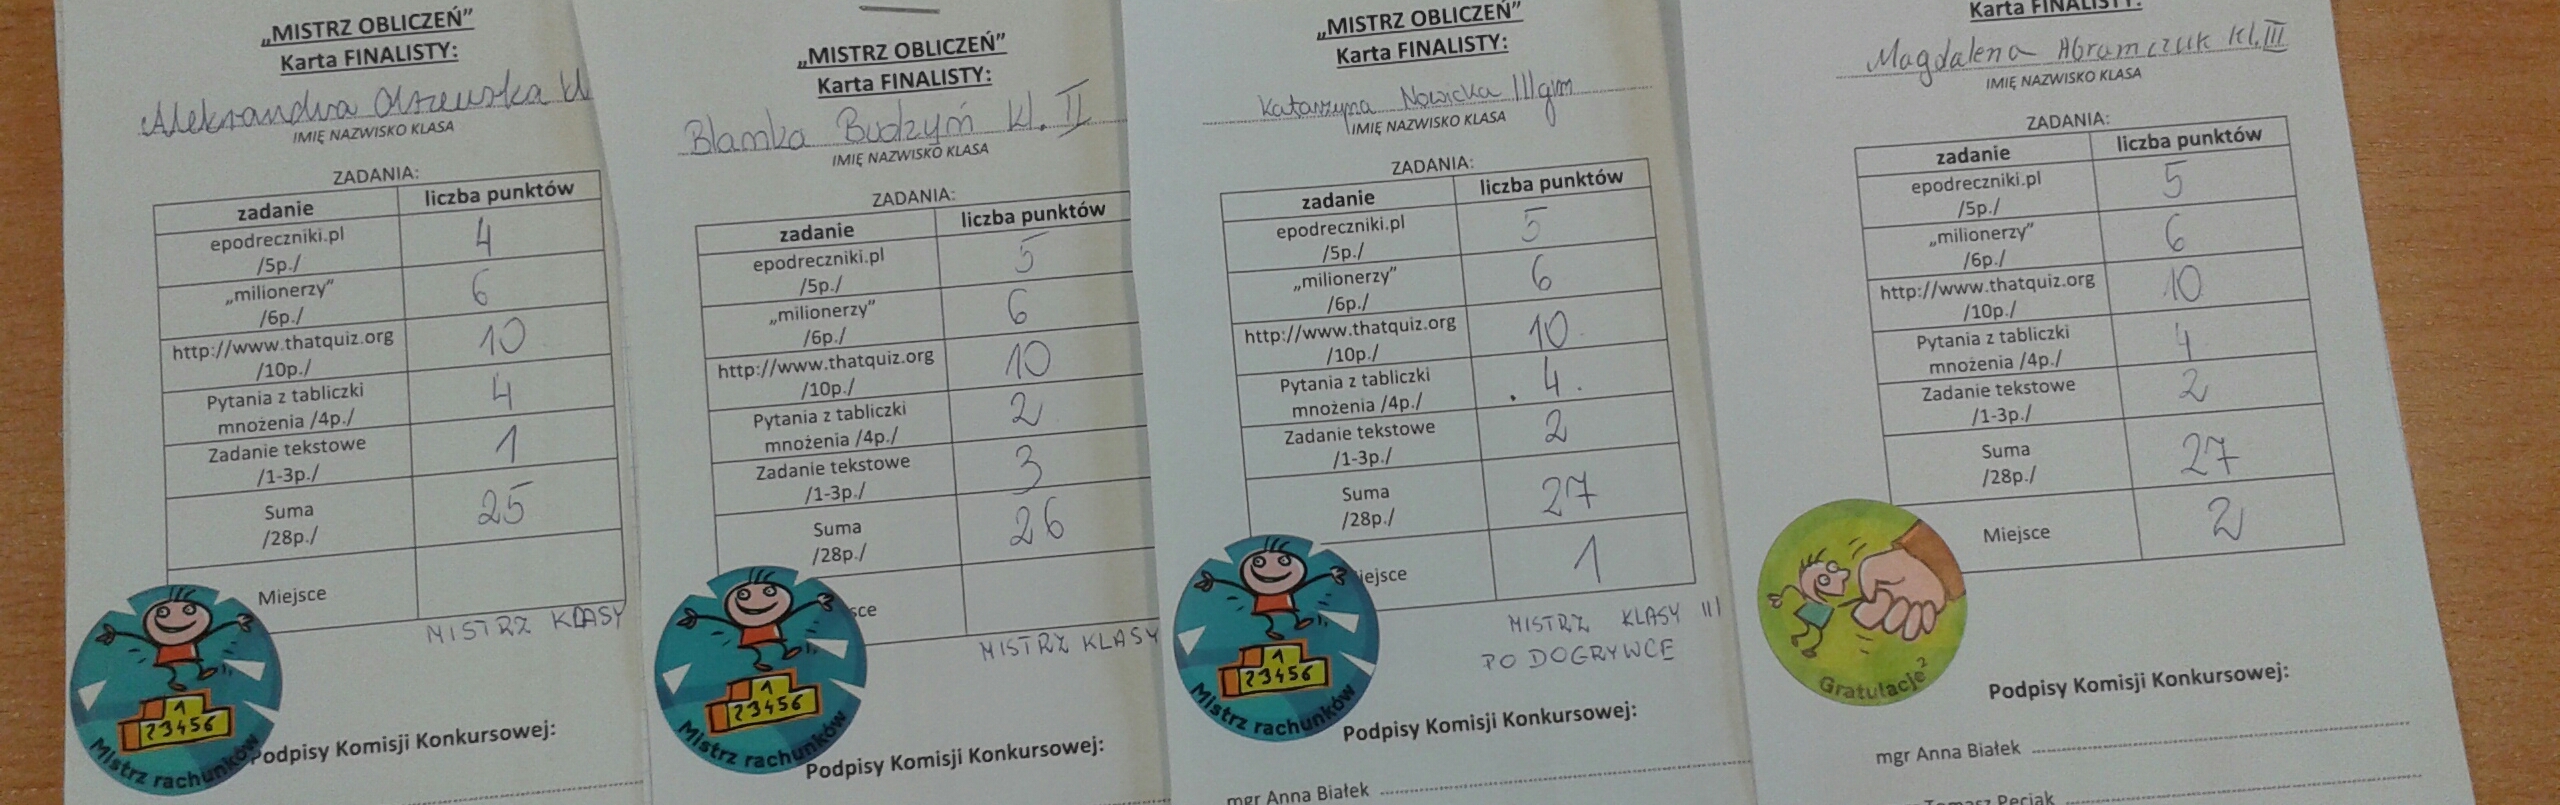 „MISTRZ OBLICZEŃ”
Karta FINALISTY:
Aleksandra Olszewska kl
IMIĘ NAZWISKO KLASA
ZADANIA:
zadanie liczba punktów
epodreczniki.pl
/5p./ 4
„milionerzy”
/6p./ 6
http://www.thatquiz.org
/10p./ 10
Pytania z tabliczki
mnożenia /4p./ 4
Zadanie tekstowe
/1-3p./ 1
Suma
/28p./ 25
Miejsce
MISTRZ KLASY
Mistrz rachunków
1
23456
Podpisy Komisji Konkursowej:
„MISTRZ OBLICZEŃ”
Karta FINALISTY:
Blanka Budzyń kl. II
IMIĘ NAZWISKO KLASA
ZADANIA:
zadanie liczba punktów
epodreczniki.pl
/5p./ 5
„milionerzy”
/6p./ 6
http://www.thatquiz.org
/10p./ 10
Pytania z tabliczki
mnożenia /4p./ 2
Zadanie tekstowe
/1-3p./ 3
Suma
/28p./ 26
sce
MISTRZ KLASY
1
23456
Mistrz rachunków
Podpisy Komisji Konkursowej:
„MISTRZ OBLICZEŃ”
Karta FINALISTY:
Katarzyna Nowicka III gim
IMIĘ NAZWISKO KLASA
ZADANIA:
zadanie liczba punktów
epodreczniki.pl
/5p./ 5
„milionerzy”
/6p./ 6
http://www.thatquiz.org
/10p./ 10
Pytania z tabliczki
mnożenia /4p./ 4
Zadanie tekstowe
/1-3p./ 2
Suma
/28p./ 27
iejsce 1
MISTRZ KLASY III
PO DOGRYWCE
1
23456
Mistrz rachunków
Podpisy Komisji Konkursowej:
mgr Anna Białek
Karta FINALISTY:
Magdalena Abramczuk kl. III
IMIĘ NAZWISKO KLASA
ZADANIA:
zadanie liczba punktów
epodreczniki.pl
/5p./ 5
„milionerzy”
/6p./ 6
http://www.thatquiz.org
/10p./ 10
Pytania z tabliczki
mnożenia /4p./ 4
Zadanie tekstowe
/1-3p./ 2
Suma
/28p./ 27
Miejsce 2
Gratulacje²
Podpisy Komisji Konkursowej:
mgr Anna Białek
Tomasz Peciak